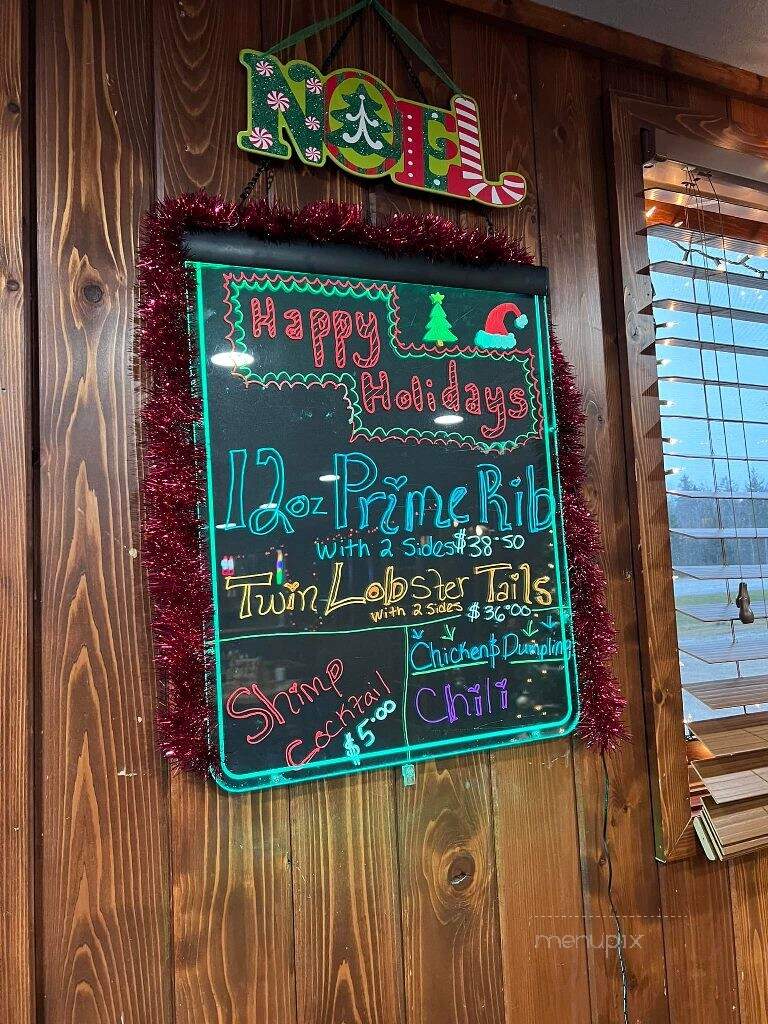 NOEL
Happy
Holidays
12oz Prime Rib
with 2 Sides $38.50
Twin Lobster Tails
with 2 sides $36.00
Chicken $ Dumpling
Shimp
Cocktail
$5.00
Chili
menupix